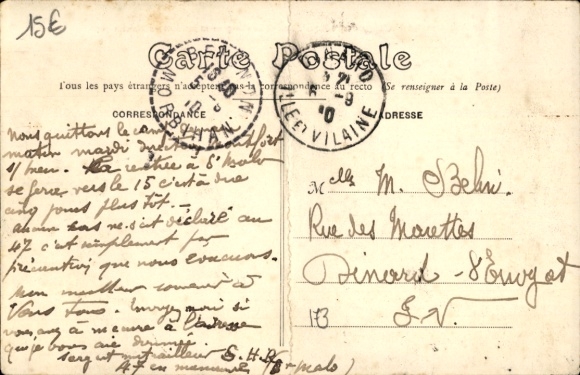 15€
Carte Postale
Tous les pays étrangers n'acceptent pas la correspondance au recto (Se renseigner à la Poste)
CORRESPONDANCE
ADRESSE
MORBIHAN
ILLE ET VILAINE
Nous quittons le camp
matin mardi direction
11 heu. La rentrée à St Malo
se fera vers le 15 c'est à dire
cinq jours plus tôt. –
aucun cas ne s'est déclaré au
47 c'est simplement par
précaution que nous évacuons.
Mon meilleur souvenir à
Vous Tous. Envoyez moi si
vous avez à m'écrire à l'adresse
que je vous ai donnée.
sergent mitrailleur S.H.R.
47 en manœuvres (St Malo)
Melle M. Belin.
Rue des Mouettes
Dinard – St Enogat
I. V.